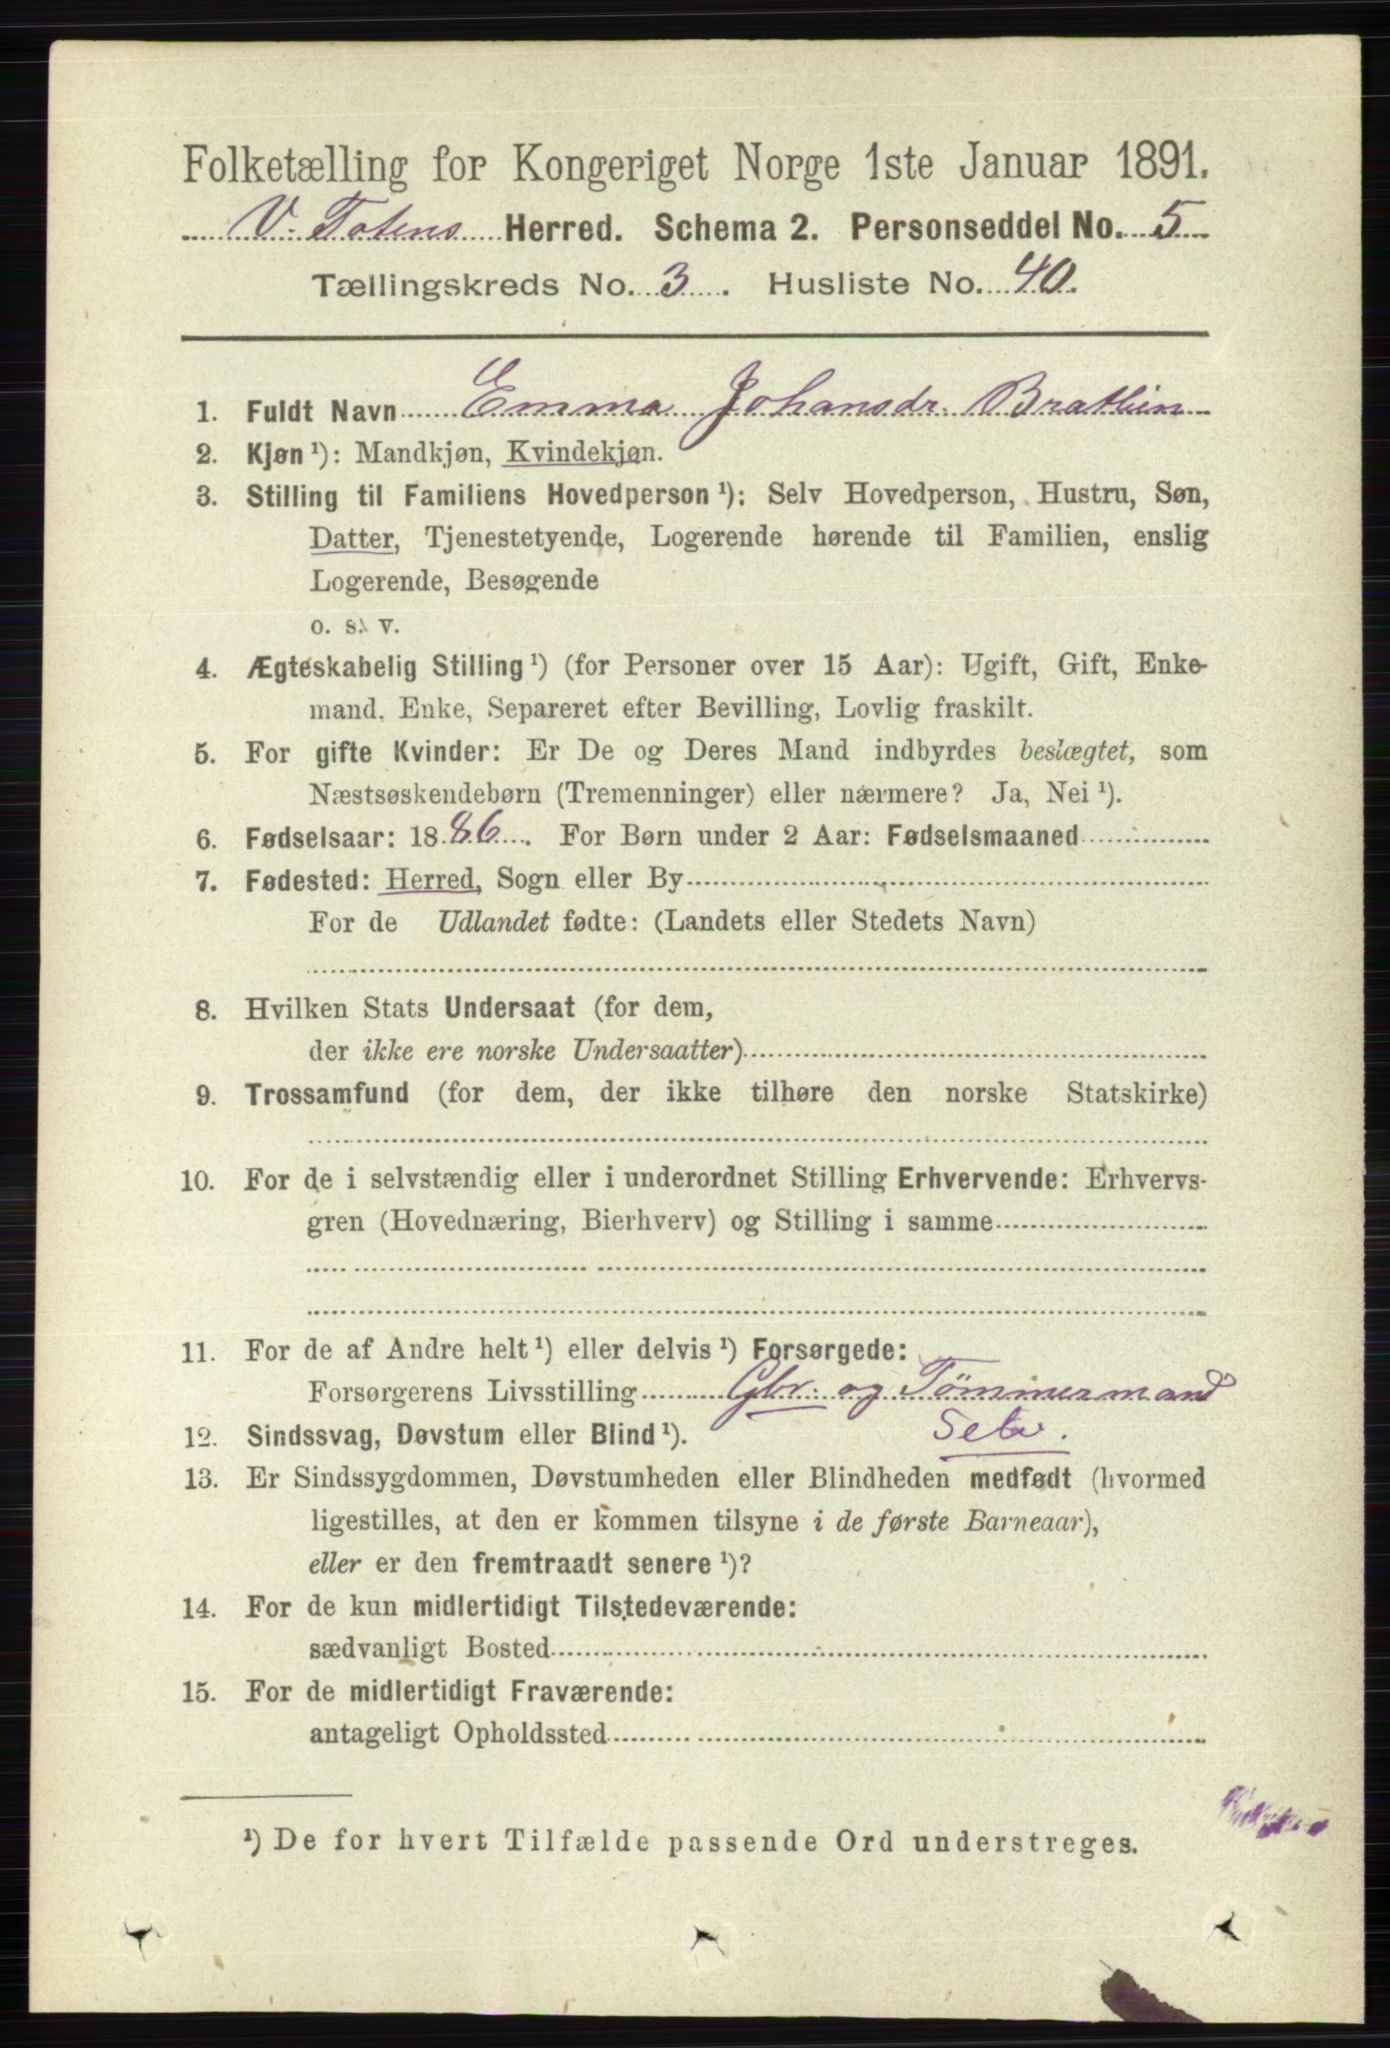 Folketælling for Kongeriget Norge 1ste Januar 1891.
V. Totens Herred. Schema 2. Personseddel No. 5
Tællingskreds No. 3. Husliste No. 40.
1. Fuldt Navn Emma Johansdr. Brathein
2. Kjøn ¹): Mandkjøn, Kvindekjøn.
3. Stilling til Familiens Hovedperson ¹): Selv Hovedperson, Hustru, Søn,
Datter, Tjenestetyende, Logerende hørende til Familien, enslig
Logerende, Besøgende
o. s. v.
4. Ægteskabelig Stilling ¹) (for Personer over 15 Aar): Ugift, Gift, Enke-
mand, Enke, Separeret efter Bevilling, Lovlig fraskilt.
5. For gifte Kvinder: Er De og Deres Mand indbyrdes beslægtet, som
Næstsøskendebørn (Tremenninger) eller nærmere? Ja, Nei ¹).
6. Fødselsaar: 1886. For Børn under 2 Aar: Fødselsmaaned
7. Fødested: Herred, Sogn eller By
For de Udlandet fødte: (Landets eller Stedets Navn)
8. Hvilken Stats Undersaat (for dem,
der ikke ere norske Undersaatter)
9. Trossamfund (for dem, der ikke tilhøre den norske Statskirke)
10. For de i selvstændig eller i underordnet Stilling Erhvervende: Erhvervs-
gren (Hovednæring, Bierhverv) og Stilling i samme
11. For de af Andre helt ¹) eller delvis ¹) Forsørgede:
Forsørgerens Livsstilling Gbr. og Tömmermand
Selv.
12. Sindssvag, Døvstum eller Blind ¹).
13. Er Sindssygdommen, Døvstumheden eller Blindheden medfødt (hvormed
ligestilles, at den er kommen tilsyne i de første Barneaar),
eller er den fremtraadt senere ¹)?
14. For de kun midlertidigt Tilstedeværende:
sædvanligt Bosted
15. For de midlertidigt Fraværende:
antageligt Opholdssted
¹) De for hvert Tilfælde passende Ord understreges.